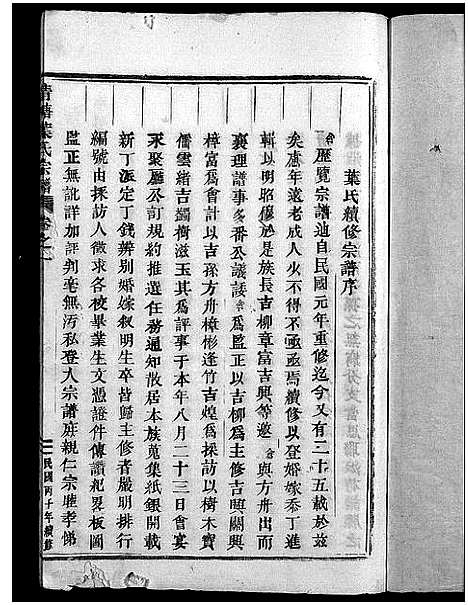 葉氏續修宗譜序
歷覽宗譜廸自民國元年重修迄今又有二十五載於兹
矣歲年遠老成人火不得不亟亟焉續修以登婚嫁添丁進
輈以明昭穆於是族長吉柳章富吉興等邀 會與方舟出而
襄理譜事多番公議諉 爲監正以吉柳爲主修吉興關興
樟富爲會計以吉孫方舟樟彬逢竹吉煌爲採訪以樹木寶
儒雲緒吉蠲樹滋玉其爲評事于本年八月二十三日會宴
永聚廳公訂規約推選任務通知散居本族蒐集紙銀開載
新丁派定丁錢辨別婚嫁叙明生卒皆歸主修者嚴明排行
編號由採訪人徵求各校畢業生文憑證件傳讚祀畧板圖
監正無訛詳加評判毫無汚私登入宗譜庶親仁宗睦孝悌
葉氏宗譜 卷之一
民國丙子年續修